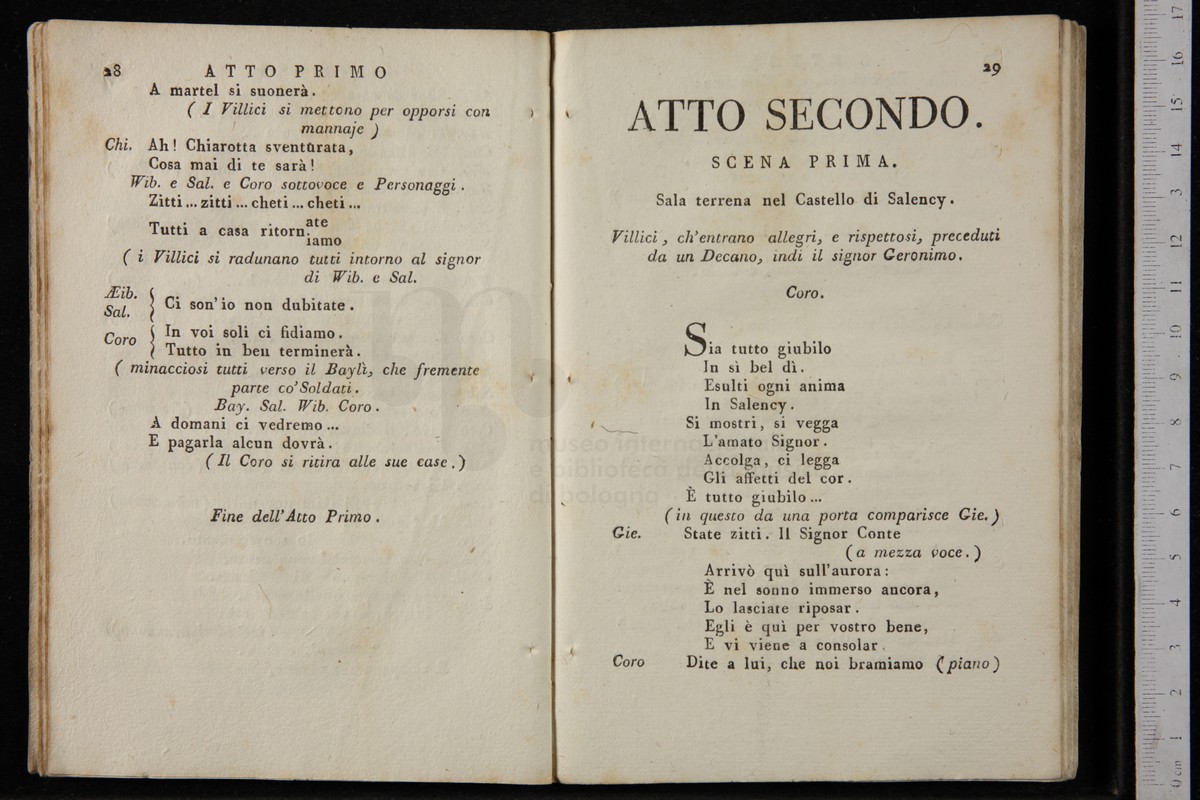 28 ATTO PRIMO
A martel si suonerà.
( I Villici si mettono per opporsi con
mannaje )
Chi. Ah! Chiarotta sventùrata,
Cosa mai di te sarà!
Wib. e Sal. e Coro sottovoce e Personaggi.
Zitti... zitti... cheti... cheti...
Tutti a casa ritorn.ate
iamo
( i Villici si radunano tutti intorno al signor
di Wib. e Sal.
Æib.
Sal. { Ci son' io non dubitate.
Coro { In voi soli ci fidiamo.
Tutto in ben terminerà.
( minacciosi tutti verso il Baylì, che fremente
parte co' Soldati.
Bay. Sal. Wib. Coro.
A domani ci vedremo...
E pagarla alcun dovrà.
( Il Coro si ritira alle sue case.)
Fine dell' Atto Primo.
29
ATTO SECONDO.
SCENA PRIMA.
Sala terrena nel Castello di Salency.
Villici, ch' entrano allegri, e rispettosi, preceduti
da un Decano, indi il signor Geronimo.
Coro.
Sia tutto giubilo
In sì bel dì.
Esulti ogni anima
In Salency.
Si mostri, si vegga
L'amato Signor.
Accolga, ci legga
Gli affetti del cor.
È tutto giubilo...
(in questo da una porta comparisce Gie.)
Gie. State zitti. Il Signor Conte
(a mezza voce.)
Arrivò quì sull'aurora:
È nel sonno immerso ancora,
Lo lasciate riposar.
Egli è quì per vostro bene,
E vi viene a consolar.
Coro Dite a lui, che noi bramiamo (piano)
museo interna
e biblioteca d
di bologna
0 cm 1 2 3 4 5 6 7 8 9 10 11 12 13 14 15 16 17